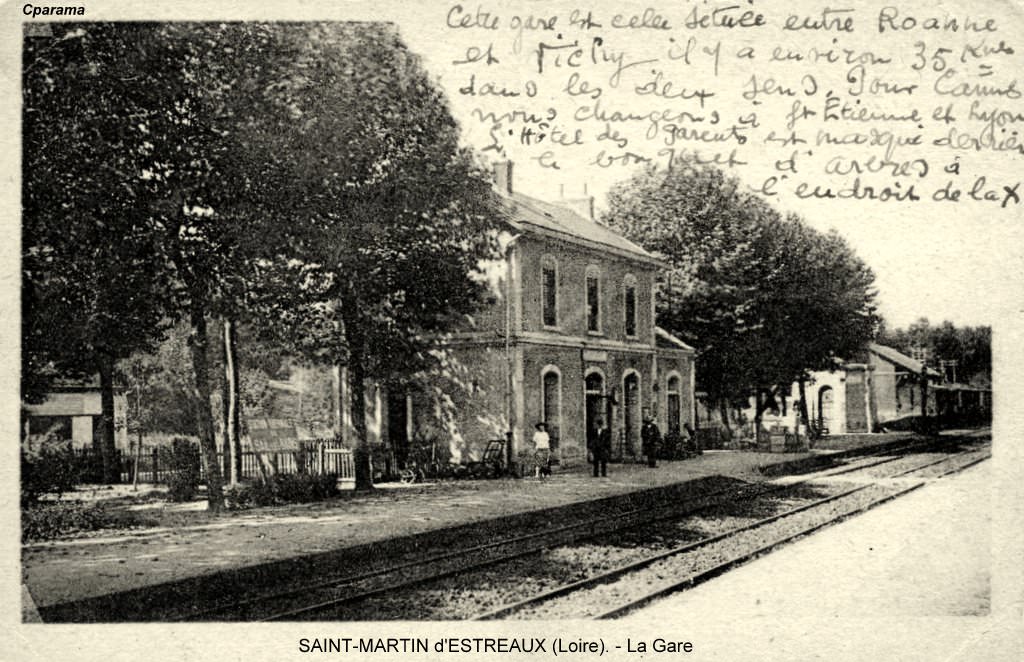 Cparama
Cette gare est celle située entre Roanne
et Vichy il y a environ 35 Kms
dans les deux sens. Pour Cannes
nous changeons à St Étienne et Lyon
L'Hôtel des parents est masqué derrière
le bouquet d'arbres à
l'endroit de la X
SAINT-MARTIN d'ESTREAUX (Loire). - La Gare